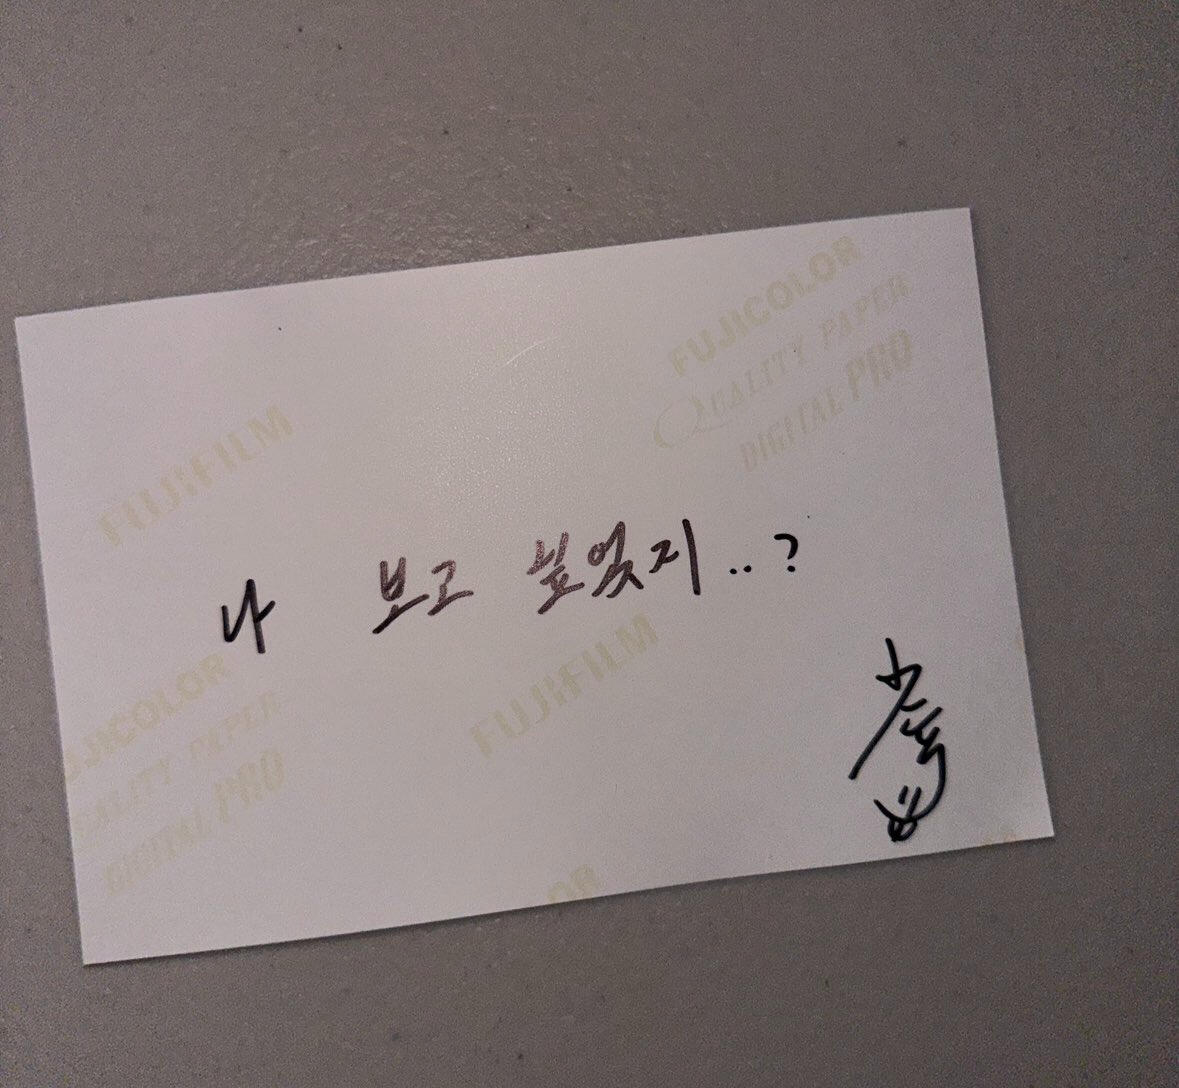 FUJICOLOR
QUALITY PAPER
DIGITAL PRO
FUJIFILM
나 보고 싶었지..?
FUJIFILM
UJICOLOR
UALITY PAPER
DIGITAL PRO
OR